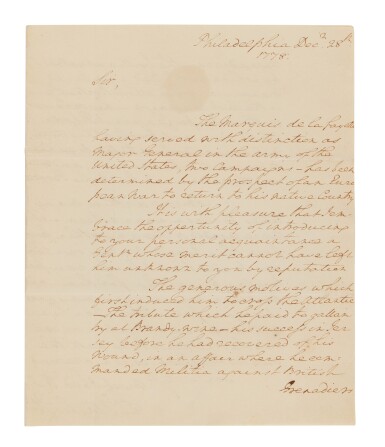 Philadelphia Decr. 28th
1778.
Sir,
The Marquis de la fayette
having served with distinction as
Major General in the army of the
United States, two Campaigns – has been
determined by the prospect of an Euro
pean War to return to his native Country
It is with pleasure that I em-
brace the opportunity of introducing
to your personal acquaintance a
Gentn. whose merit cannot have left
him unknown to you by reputation
The generous motives which
first induced him to cross the atlantic
– The tribute which he paid to gallan
try at Brandywine – his success in Jer-
sey before he had recovered of his
Wound, in an affair where he com-
manded Militia against British
Grenadiers